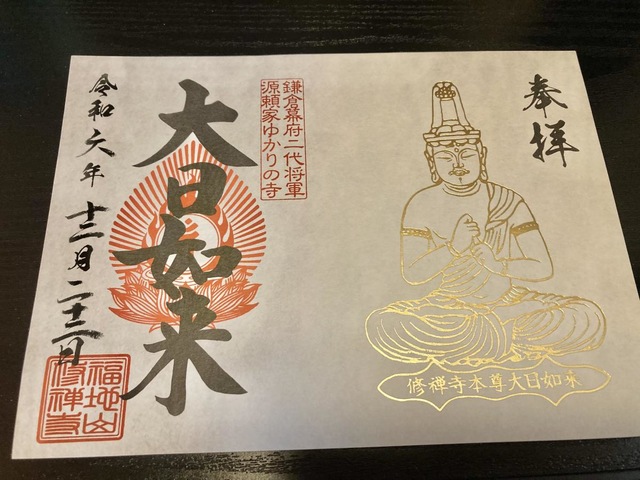 奉拝
鎌倉幕府二代将軍
源頼家ゆかりの寺
大日如来
令和六年十二月二十二日
福地山
修禅寺
修禅寺本尊大日如来